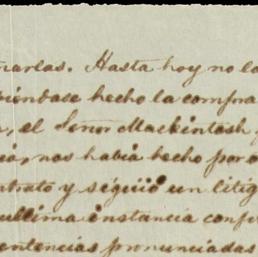 narlas. Hasta hoy no lo
biéndose hecho la compra
, el Señor Mackintosh
ia, nos habia hecho por
ntrato y seguió un litig
ultima instancia conf
entencias pronunciadas